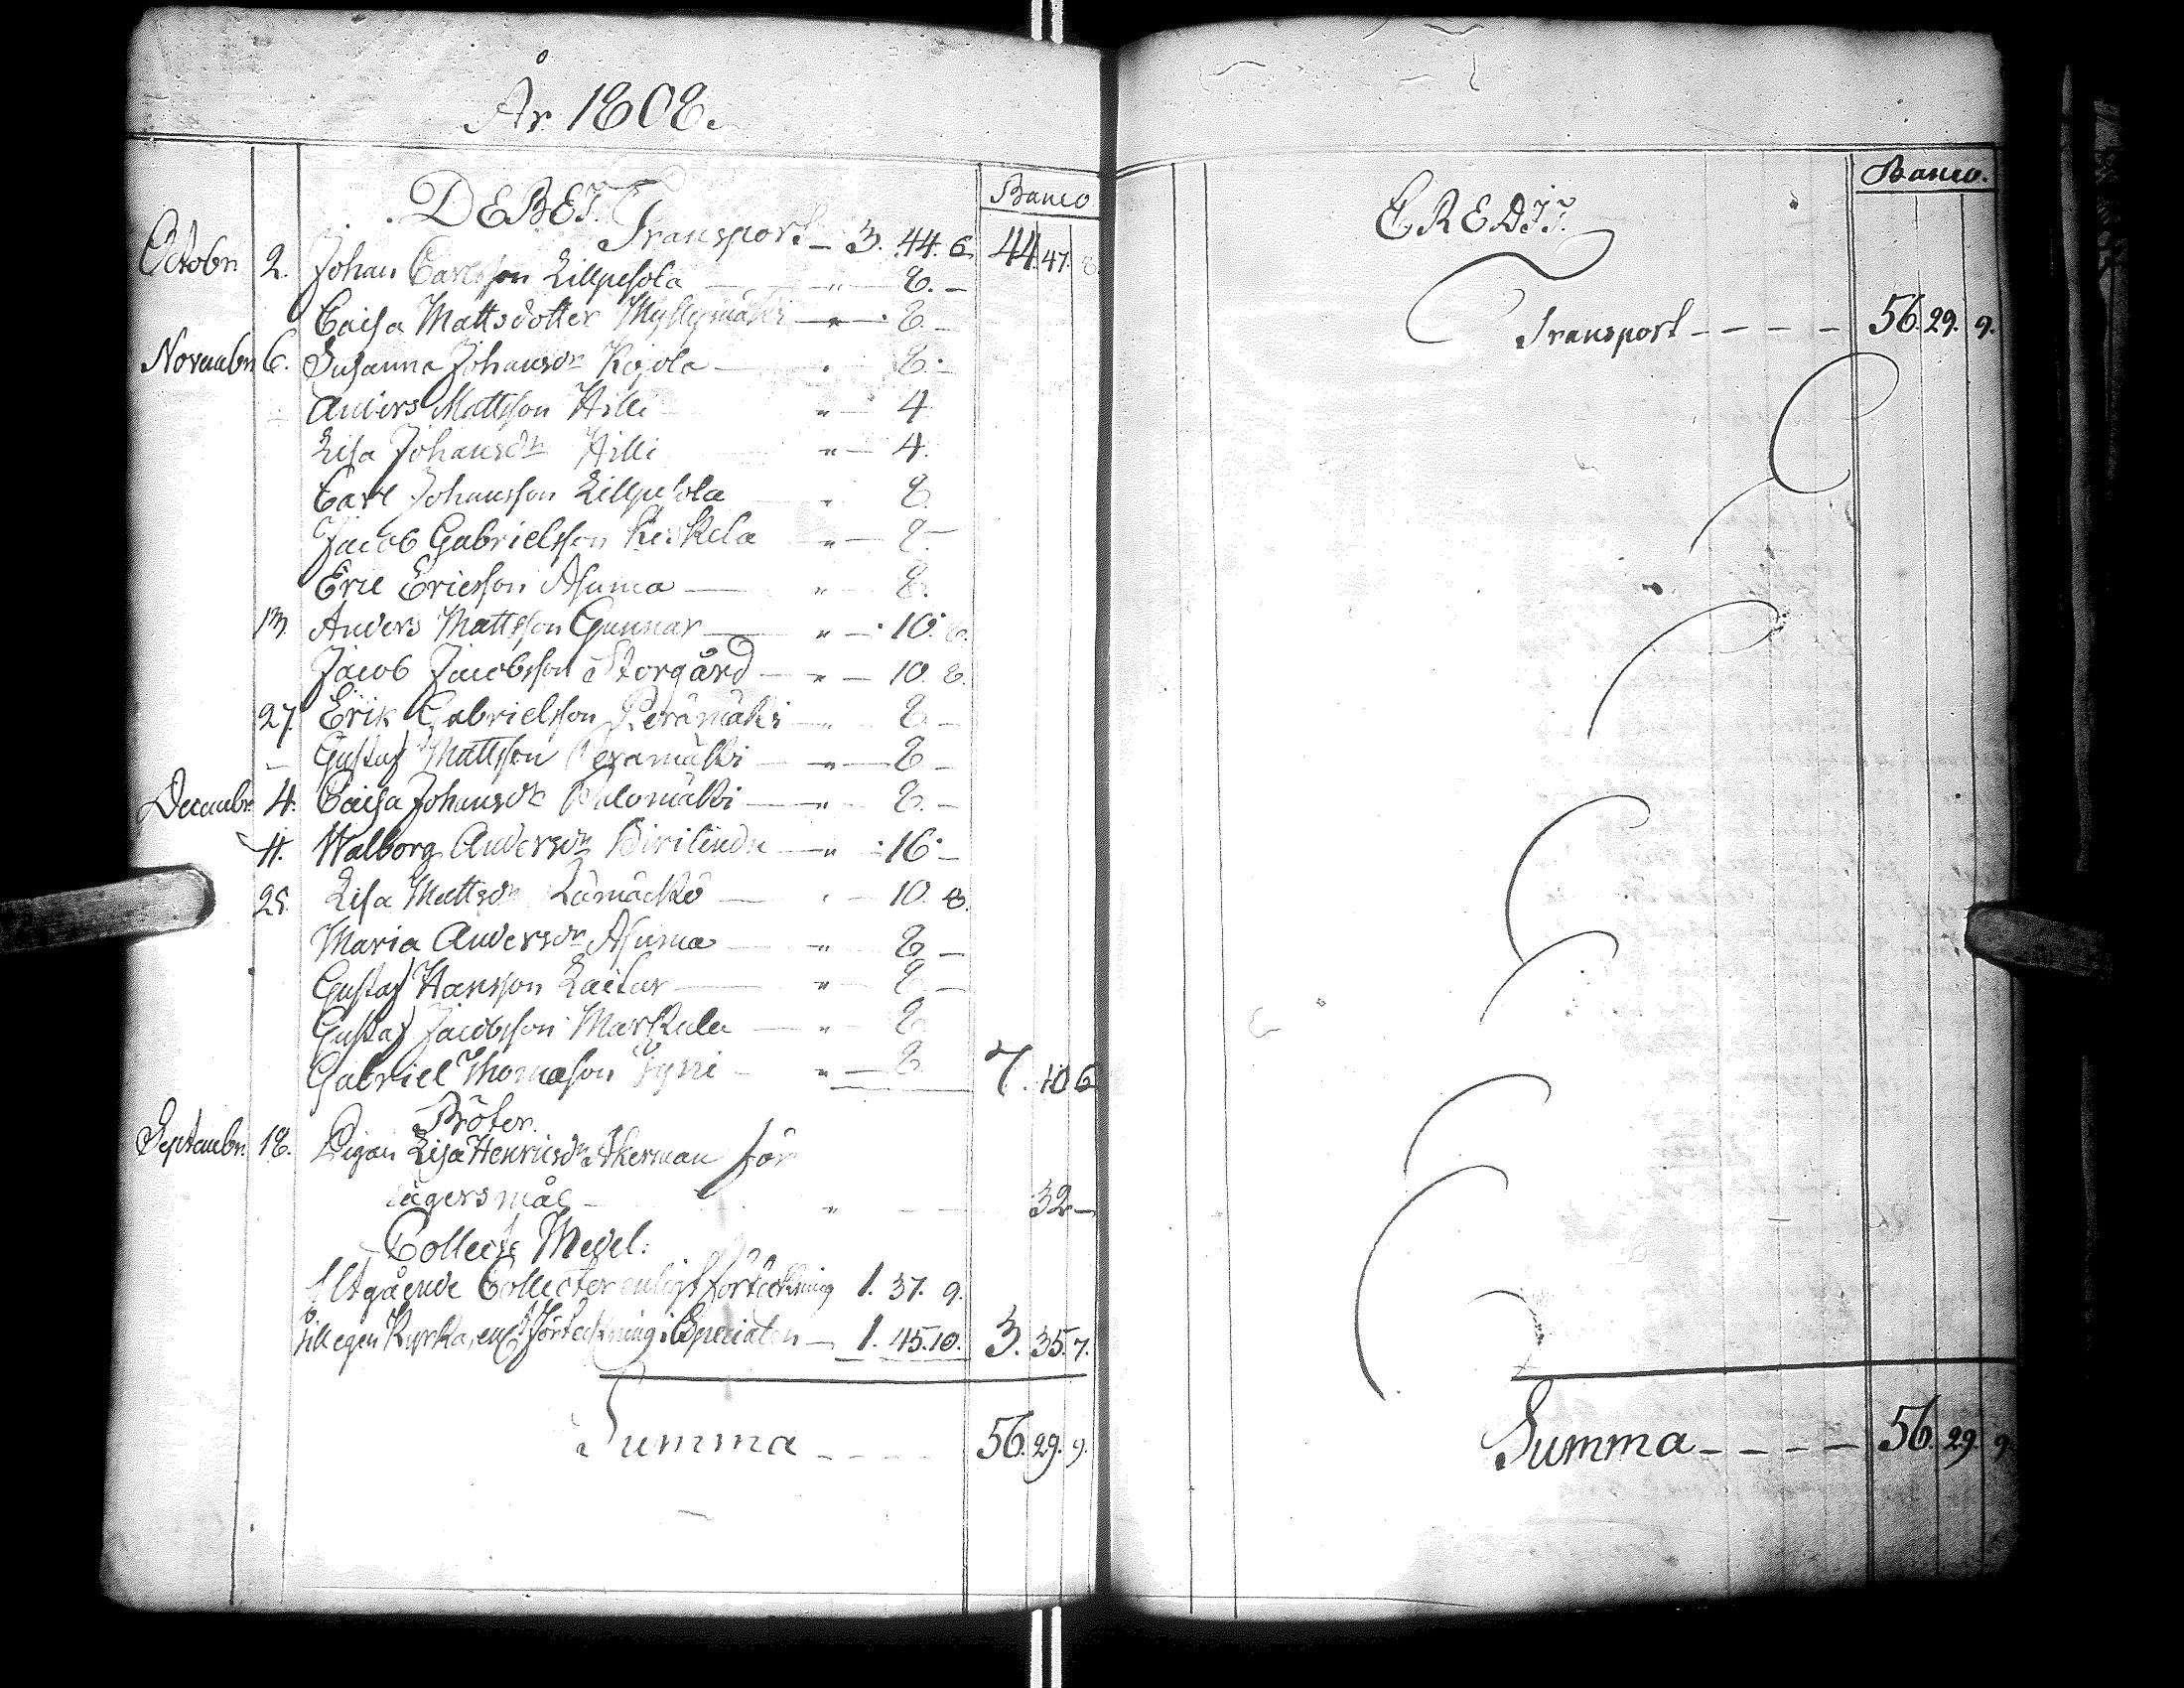 År 1808.
DEBET. Banco
Transport – 3. 44. 6. 44. 47. 8.
Octobr. 2. Johan Carlsson Lillpesola — " — 8. –
Caisa Mattsdotter Myllymäki — " — 8. –
Novembr. 6. Susanna Johansdr Kojola — " — 8. –
Anders Mattsson Hilli " — 4.
Lisa Johansdr Hilli " — 4.
Carl Johansson Lillpesola " 8.
Jacob Gabrielsson Keskela " — 8. –
Eric Ericsson Asuma — " — 8.
13. Anders Mattsson Gunnar — " — 10. 8.
Jacob Jacobsson Storgård — " — 10. 8.
27. Erik Gabrielsson Perämäki — " 8. –
– Gustaf Mattsson Peramäki — " — 8 –
Decembr. 4. Caisa Johansdr Palomäki — " — 8. –
11. Walborg Andersdr — " — 16. –
25. Lisa Mattsdr — " — 10. 8.
Maria Andersdr Asuma — " 8 –
Gustaf Hansson Laitar — " — 8 –
Gustaf Jacobsson Markela — " — 8
Gabriel Thomasson — " — 8 7. 10. 6
Böter.
Septembr. 18. Pigan Lisa Henricsdr Åkerman för
lägersmål – " — 32 –
Collects Medel:
Utgående Collecter enligt förtekning 1. 37. 9.
Till egen Kyrka, enl. förtekning i Specialen – 1. 45. 10. 3. 35. 7.
Summa - - - - 56. 29. 9.
CREDIT. Banco.
Transport - - - - 56. 29. 9.
Summa - - - - 56. 29. 9.